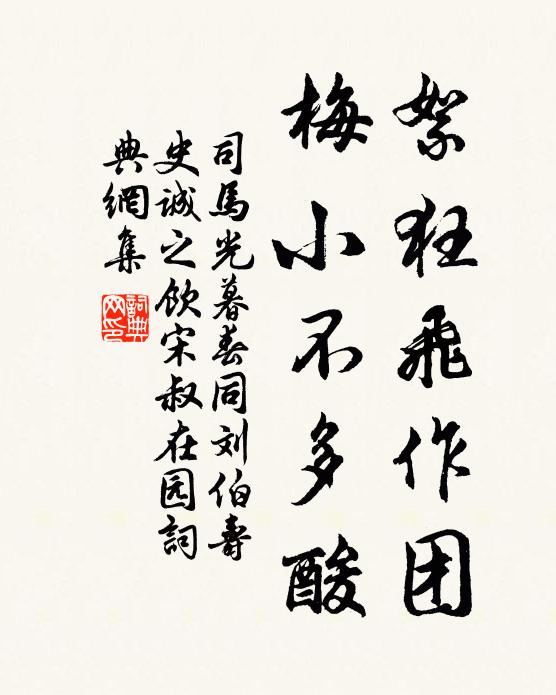 絮狂飛作团
梅小不多酸
司馬光暮春同刘伯壽
史诚之飲宋叔在园詞
典網集
詞典
网印